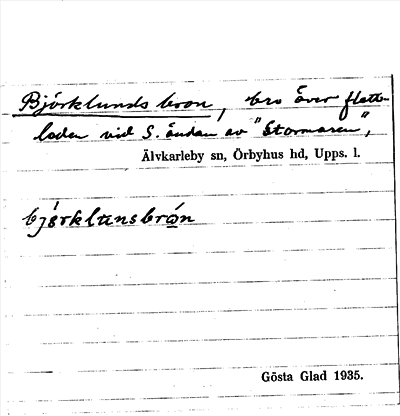 Björklunds bron, bro över flott-
leden vid S. ändan av "Stormaren",
Älvkarleby sn, Örbyhus hd, Upps. l.
bjö́rkluns brón
Gösta Glad 1935.